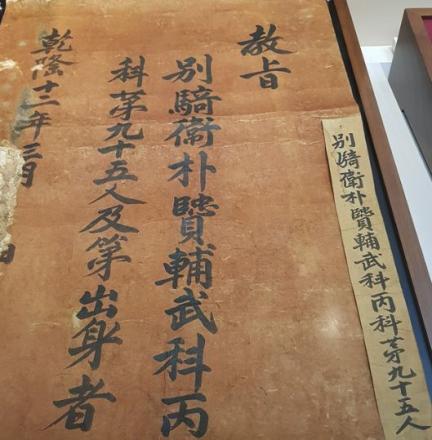 別騎衛朴輔武科丙科苐九十五人
教旨
別騎衛朴輔武科丙
科苐九十五人及第出身者
乾隆十二年三月
日